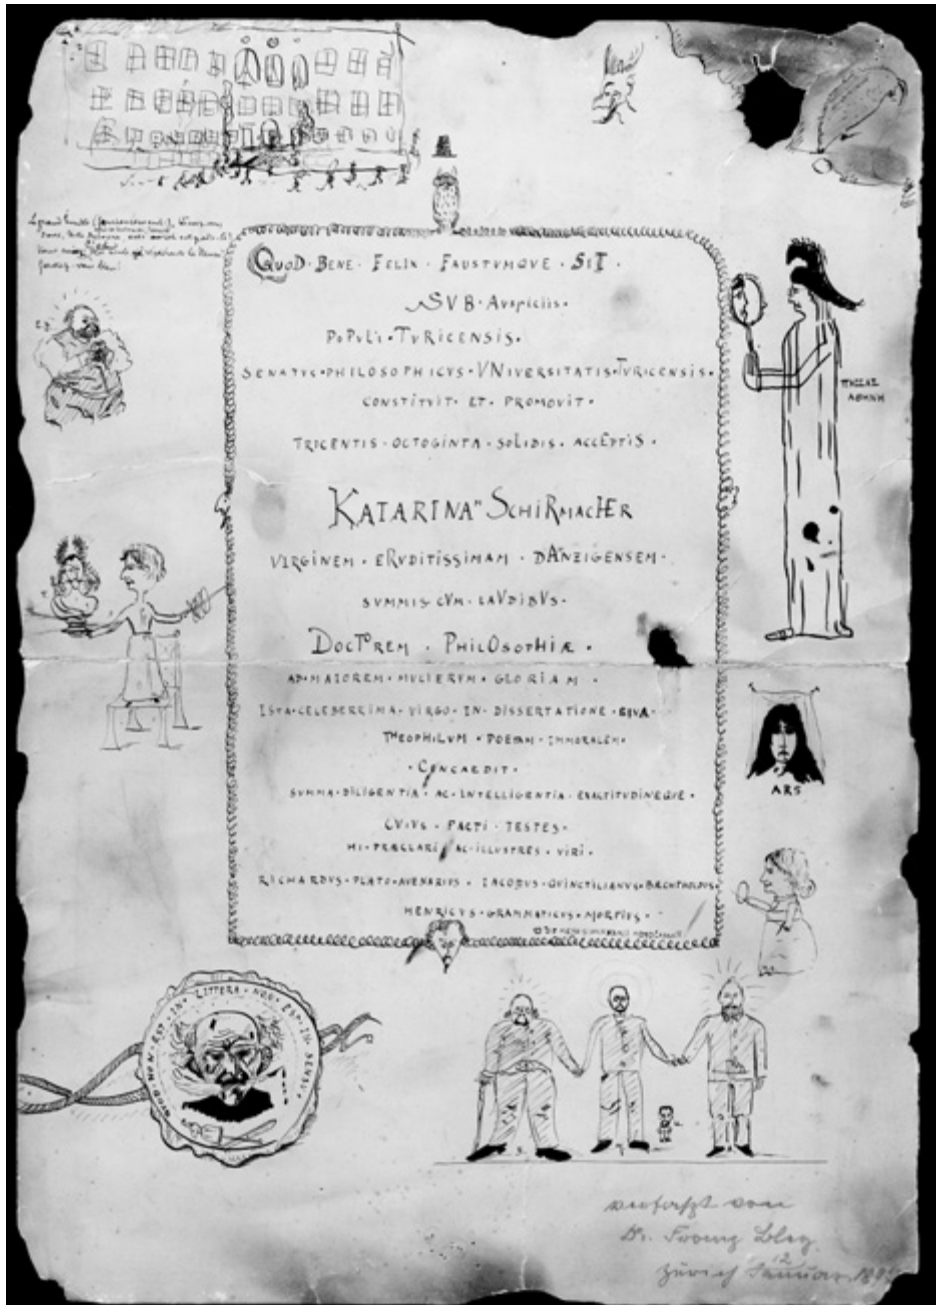 QUOD · BENE · FELIX · FAUSTUMQVE · SIT ·
SVB · AVSPICIIS ·
POPULI · TVRICENSIS ·
SENATVS · PHILOSOPHICVS · VNIVERSITATIS · TVRICENSIS ·
CONSTITVIT · ET · PROMOVIT ·
TRICENTIS · OCTOGINTA · SOLIDIS · ACCEPTIS ·
ΑΘΗΝΗ
KATARINAM SCHIRMACHER
VIRGINEM · ERVDITISSIMAM · DANZIGENSEM ·
SVMMIS · CVM · LAVDIBVS ·
DOCTREM · PHILOSOPHIÆ ·
AD · MAIOREM · MVLIERVM · GLORIAM ·
ISTA · CELEBERRIMA · VIRGO · IN · DISSERTATIONE · EIVA ·
THEOPHILVM · POETAM · IMMORALEM ·
ARS
SUMMA · DILIGENTIA · AC · INTELLIGENTIA · EXACTITUDINEQVE ·
CVIVS · FACTI · TESTES ·
HI · PRAECLARI · AC · ILLUSTRES · VIRI ·
RICHARDVS · PLATO · AVENARIVS · IACOBVS · QVINCTILIANVS · BAECHTHOLDVS
HENRICVS · GRAMMATICVS · MORFIVS ·
QVOD · NON · EST · IN · LITTERA · NON · EST · IN · SENSV ·
verfaßt von
Dr. Franz Bley
Zürich 12 Januar